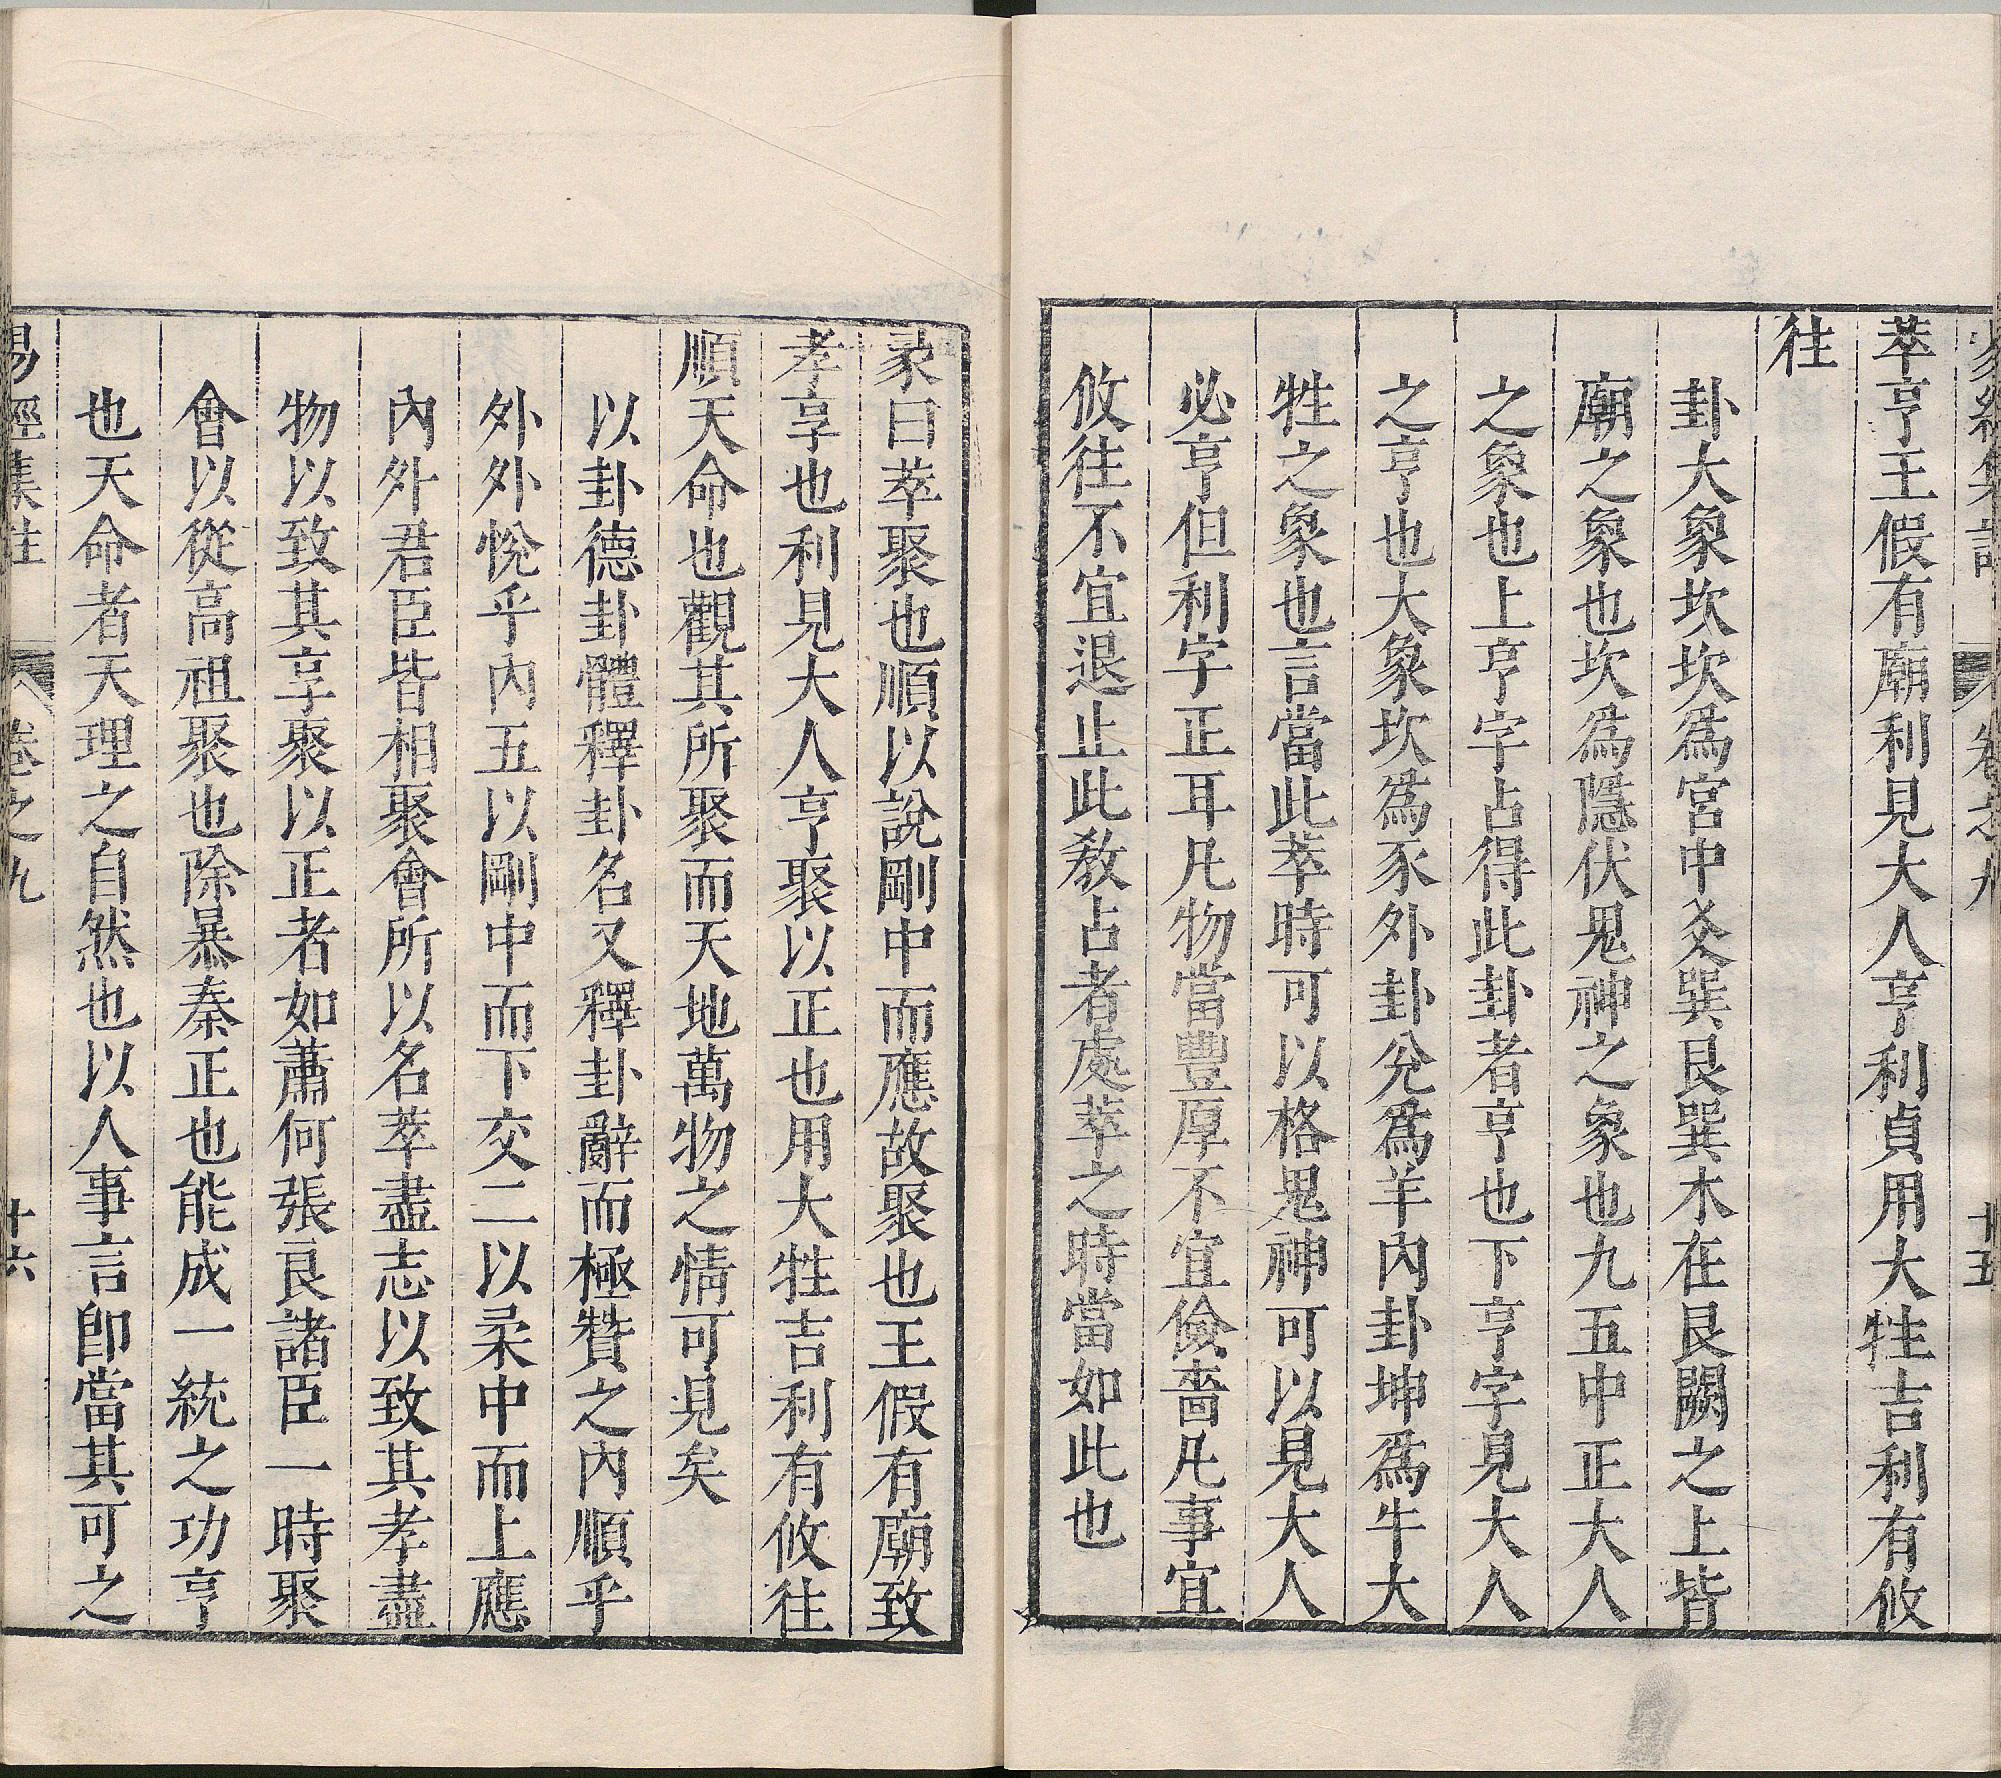 易經集註 卷之九 十五
萃亨王假有廟利見大人亨利貞用大牲吉利有攸
往
卦大象坎坎爲宮中爻巽艮巽木在艮闕之上皆
廟之象也坎爲隱伏鬼神之象也九五中正大人
之象也上亨字占得此卦者亨也下亨字見大人
之亨也大象坎爲豕外卦兌爲羊內卦坤爲牛大
牲之象也言當此萃時可以格鬼神可以見大人
必亨但利字正耳凡物當豐厚不宜儉嗇凡事宜
攸往不宜退止此教占者處萃之時當如此也
彖曰萃聚也順以說剛中而應故聚也王假有廟致
孝享也利見大人亨聚以正也用大牲吉利有攸往
順天命也觀其所聚而天地萬物之情可見矣
以卦德卦體釋卦名又釋卦辭而極贊之內順乎
外外悅乎內五以剛中而下交二以柔中而上應
內外君臣皆相聚會所以名萃盡志以致其孝盡
物以致其享聚以正者如蕭何張良諸臣一時聚
會以從高祖聚也除暴秦正也能成一統之功亨
也天命者天理之自然也以人事言卽當其可之
易經集註 卷之九 十六